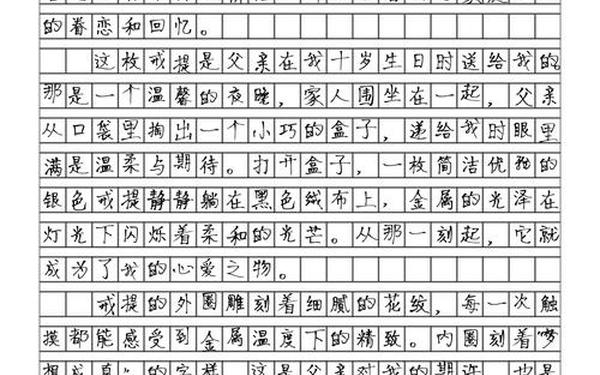 的眷恋和回忆。
这枚戒提是父亲在我十岁生日时送给我的
那是一个温馨的夜晚，家人围坐在一起，父亲
从口袋里掏出一个小巧的盒子，递给我时眼里
满是温柔与期待。打开盒子，一枚简洁优雅的
银色戒提静静躺在黑色绒布上，金属的光泽在
灯光下闪烁着柔和的光芒。从那一刻起，它就
成为了我的心爱之物。
戒提的外圈雕刻着细腻的花纹，每一次触
摸都能感受到金属温度下的精致。内圈刻着“梦
想成真”的字样，这是父亲对我的期许，也是